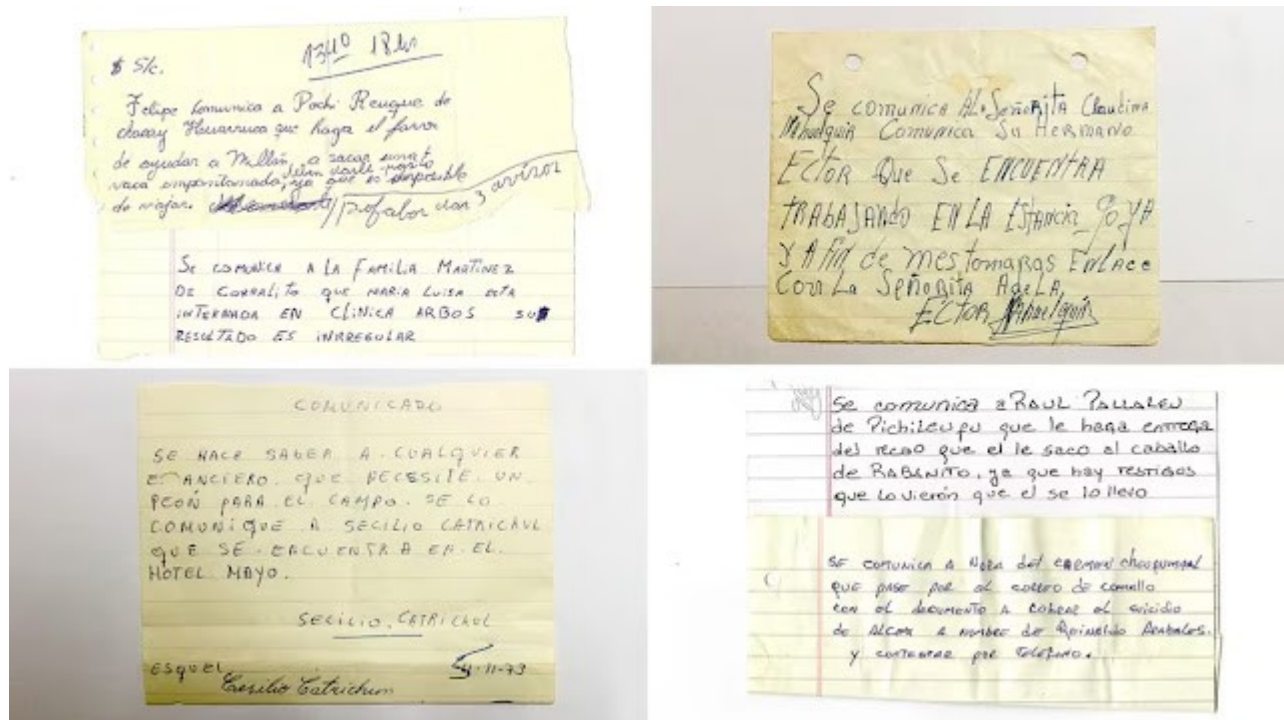 $ S/c.
13/10 18 hs
Felipe comunica a Pochi Reuque de
chacay Huarruca que haga el favor
de ayudar a Millán, a sacar
vaca empantanada, ya que es imposible
de viajar.
3 avisos
SE COMUNICA A LA FAMILIA MARTINEZ
DE CORRALITO QUE MARIA LUISA ESTA
INTERNADA EN CLINICA ARBOS SU
RESULTADO ES INRREGULAR
Se comunica AL Señorita Claudina
Nahuelquir Comunica Su HERMANO
ECTOR Que Se ENCUENTRA
TRAbAJANdo EN LA EStANCIA GOYA
Y A FIN de mes tomaras ENLACE
Con La SEÑORITA AdeLA,
ECTOR Nahuelquir
COMUNICADO
SE HACE SABER A CUALQUIER
ESTANCIERO. QUE NECESITE. UN
PEON PARA EL CAMPO. SE LO
COMUNIQUE A SECILIO CATRICHUL
QUE SE ENCUENTRA EN EL
HOTEL MAYO.
SECILIO. CATRICHUL
ESQUEL 4-11-73
Cesilio Catrichun
Se comunica a RAUL PALLALEU
de Pichileufu que le haga entrega
del recao que el le saco al caballo
de RABANITO, ya que hay testigos
que lo vierón que el se lo llevo
SE COMUNICA A NORA del CARMEN
que pase por el correo de comallo
con el documento A COBRAR el
de A nombre de Reinaldo
y contestar por telefono.